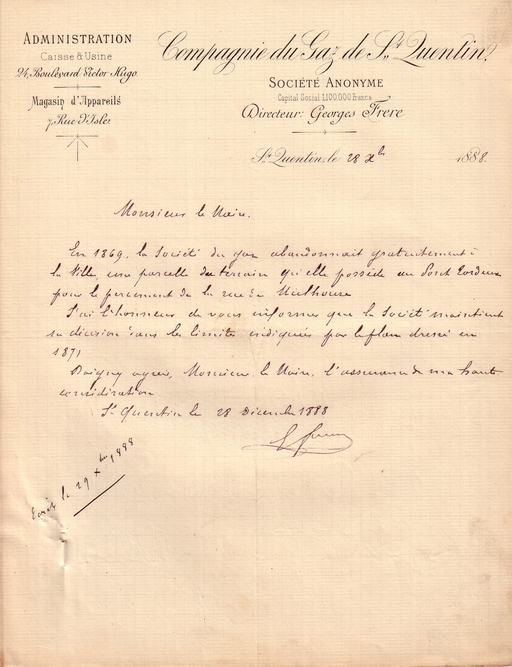 ADMINISTRATION
Caisse & Usine
24, Boulevard Victor Hugo.
Magasin d'Appareils
7, Rue d'Isle.
Compagnie du Gaz de St Quentin.
SOCIÉTÉ ANONYME
Capital Social 1.100.000 Francs
Directeur: Georges Frere
St Quentin, le 28 Xbre 1888.
Monsieur le Maire,
En 1869, la Société du gaz abandonnait gratuitement à
la Ville une parcelle de terrain qu'elle possède au
pour le percement de la rue de Mulhouse
J'ai l'honneur de vous informer que la Société maintient
sa décision dans les limites indiquées par le plan dressé en
1871
Daignez agréer, Monsieur le Maire, l'assurance de ma haute
considération
St Quentin le 28 Décembre 1888
le 29 Xbre 1888